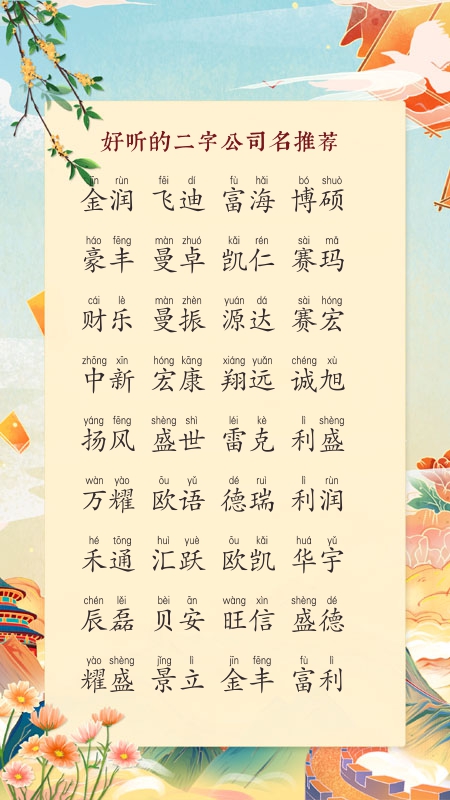 好听的二字公司名推荐
jīn rùn fēi dí fù hǎi bó shuò
金润 飞迪 富海 博硕
háo fēng màn zhuó kǎi rén sài mǎ
豪丰 曼卓 凯仁 赛玛
cái lè màn zhèn yuán dá sài hóng
财乐 曼振 源达 赛宏
zhōng xīn hóng kāng xiáng yuǎn chéng xù
中新 宏康 翔远 诚旭
yáng fēng shèng shì léi kè lì shèng
扬风 盛世 雷克 利盛
wàn yào ōu yǔ dé ruì lì rùn
万耀 欧语 德瑞 利润
hé tōng huì yuè ōu kǎi huá yǔ
禾通 汇跃 欧凯 华宇
chén lěi bèi ān wàng xìn shèng dé
辰磊 贝安 旺信 盛德
yào shèng jǐng lì jīn fēng fù lì
耀盛 景立 金丰 富利